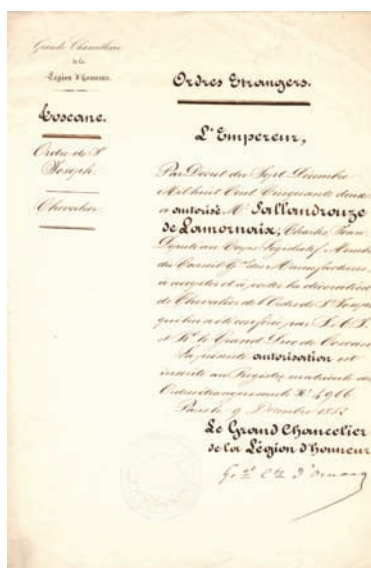 Grande Chancellerie
de la
Légion d'honneur.
Toscane.
Ordre de St
Joseph.
Chevalier.
Ordres Etrangers.
L'Empereur,
Par Décret du Sept Décembre
Mil huit Cent Cinquante deux
a autorisé Mr Sallandrouze
de Lamornaix, Charles Jean
Député au Corps Législatif, Membre
du Conseil Gal des Manufactures,
à accepter et à porter la décoration
de Chevalier de l'Ordre de St Joseph
qui lui a été conférée par S. A. I.
et Rle le Grand Duc de Toscane
La présente autorisation est
inscrite au Registre matricule des
Ordres étrangers sous le No 4966
Paris le 9 Décembre 1852
Le Grand Chancelier
de la Légion d'honneur
Gal Cte d'Ornano